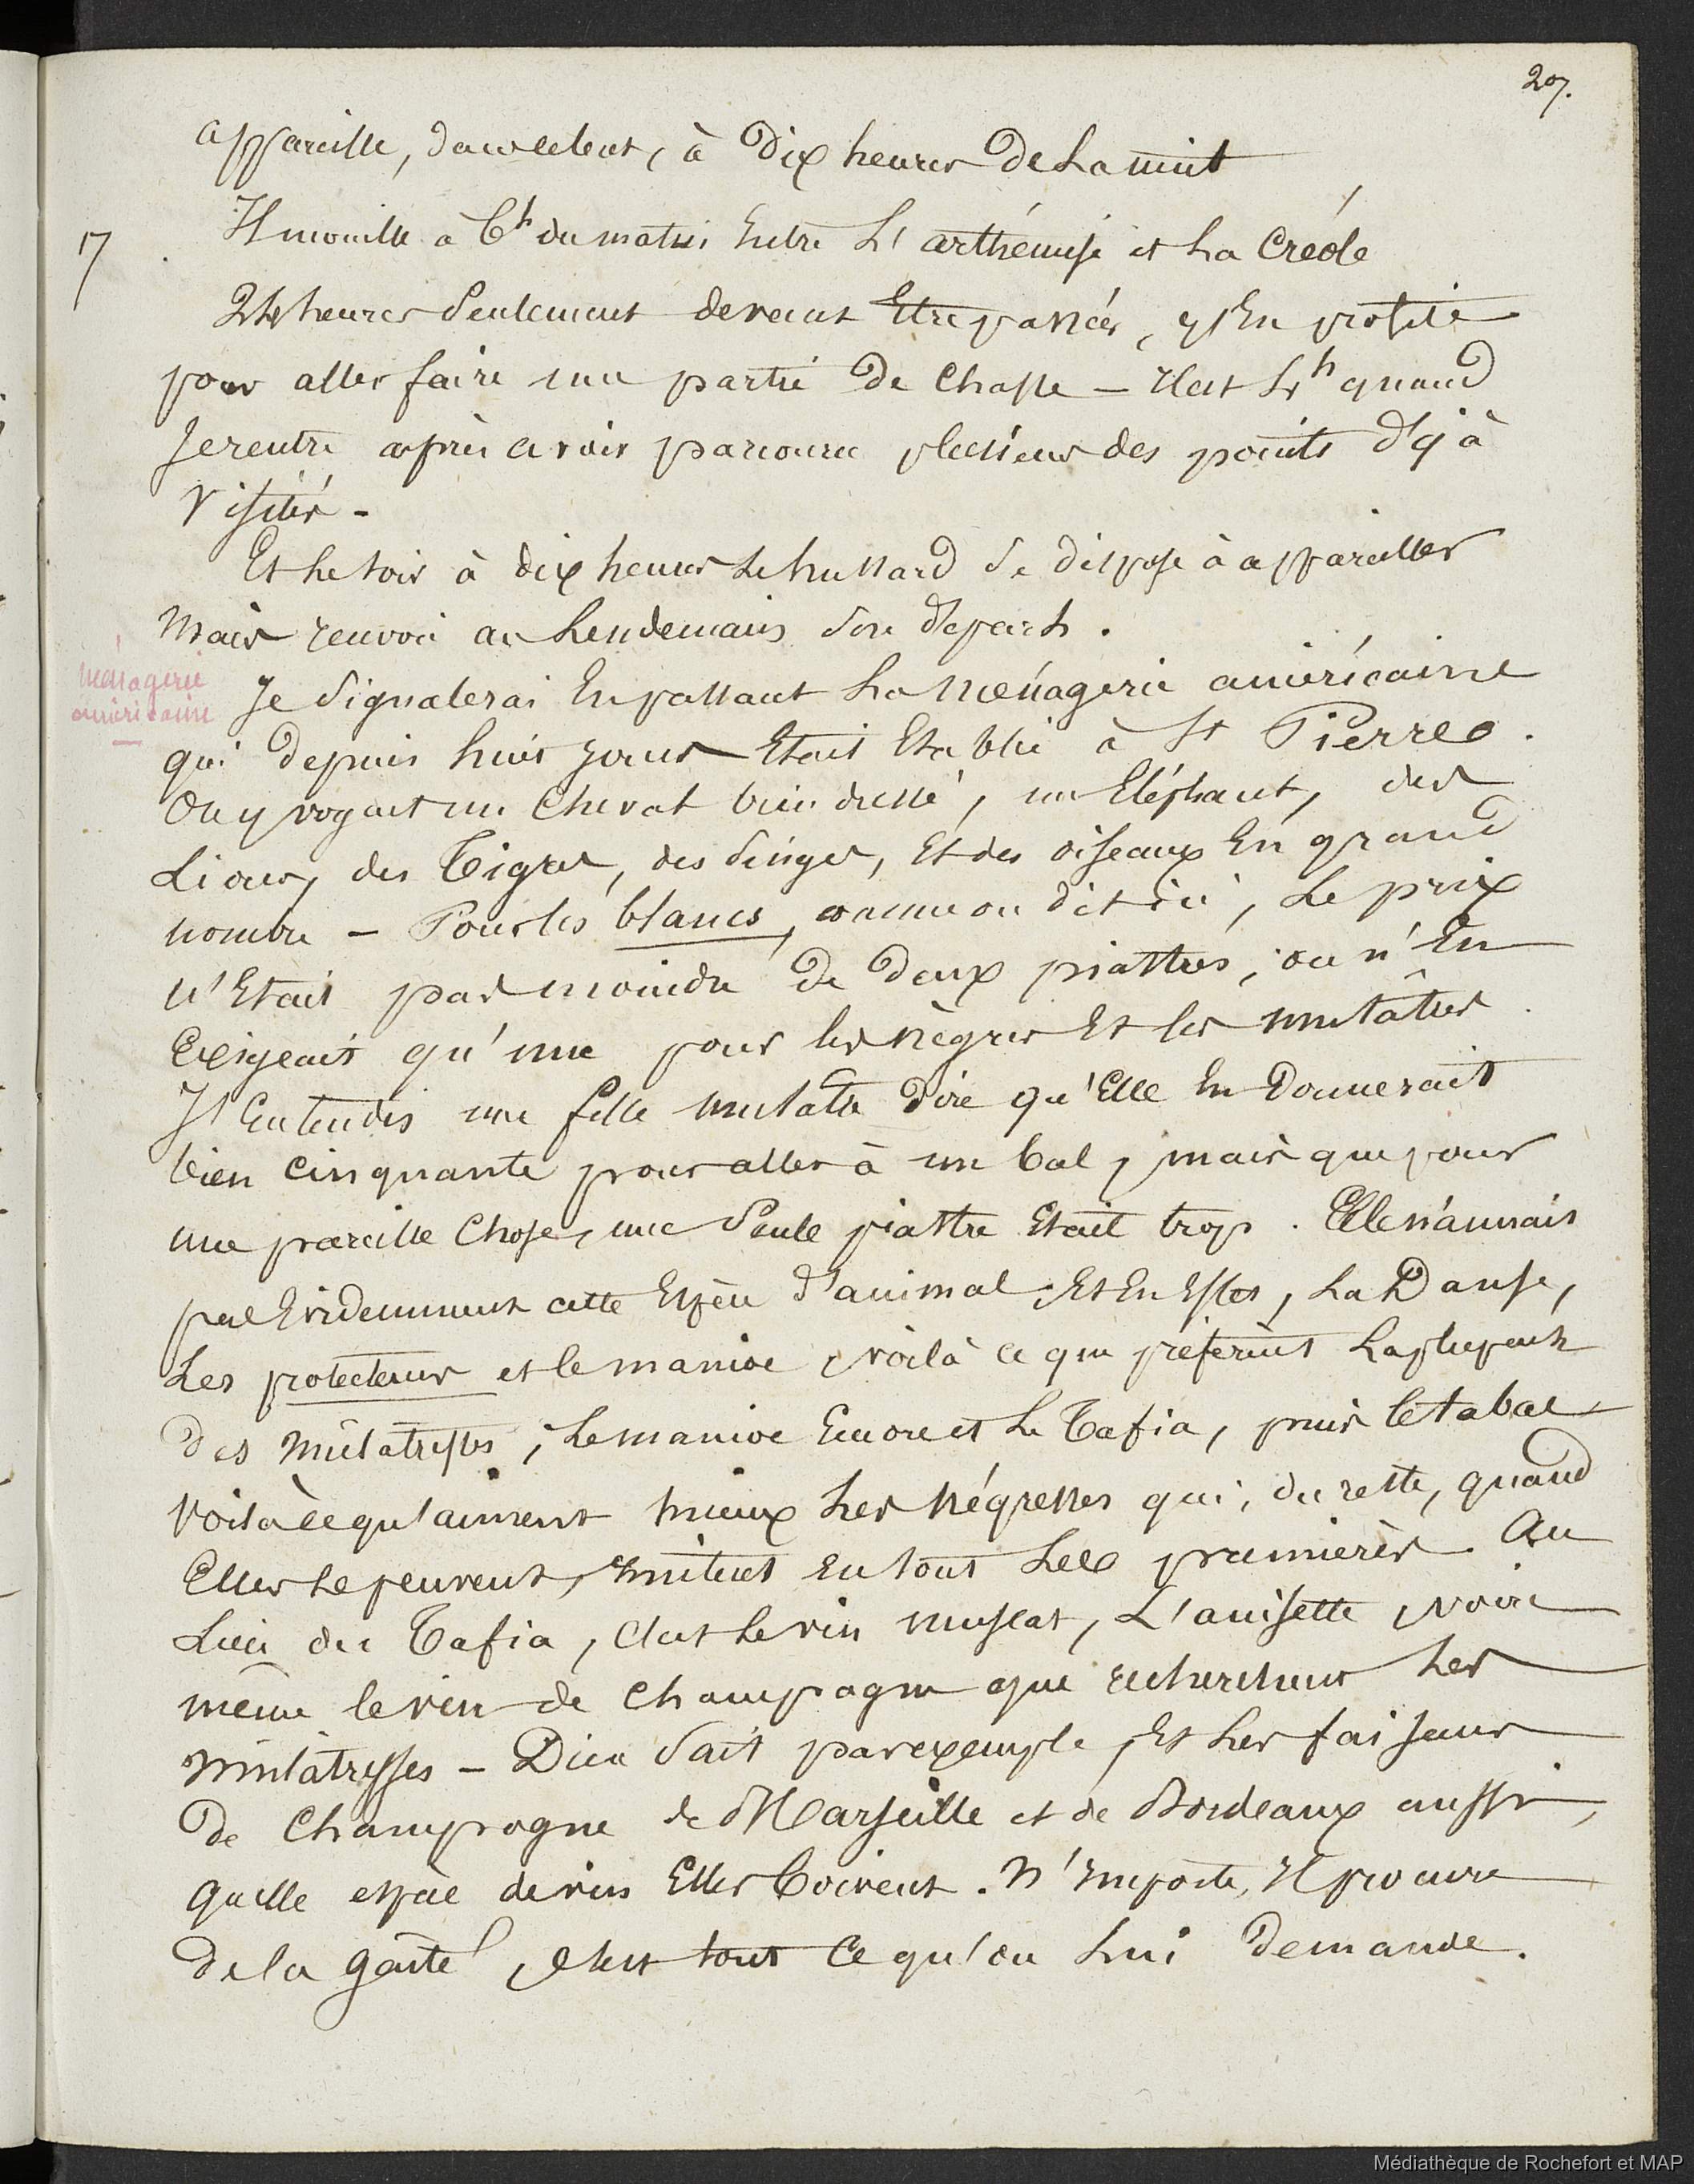 207.
appareille, dans ce but, à Dix heures de La nuit
17
Il mouille à 6h du matin Entre L'arthémise et La Créole
24 heures Seulement devant Etre passées, j'En profite
pour aller faire une partie de Chasse — Il est 4h quand
Je rentre après avoir parcouru plusieurs des points déjà
visités -
Et Le soir à dix heures Le hussard Se dispose à appareiller
Mais renvoi au Lendemain Son départ.
Ménagerie
américaine
Je Signalerai En passant La Ménagerie américaine
qui depuis huit jours Etait Etablie à St Pierre.
On y voyait un Cheval bien dressé, un Eléphant, des
Lions, des Tigres, des Singes, Et des oiseaux En grand
nombre — Pour les blancs, comme on dit ici, Le prix
n'Etait pas moindre De Deux piastres, on n'En
Exigeait qu'une pour les nègres Et les mulâtres.
J'Entendis une fille mulatre dire qu'Elle En Donnerait
bien cinquante pour aller à un bal, mais que pour
une pareille Chose, une Seule piastre Etait trop. Elle n'aimait
pas Evidemment cette Espèce d'animal. Et En Effet, La Danse,
Les protecteurs et le manioc, voilà ce que préfèrent La plupart
des mulatresses ; Le manioc Encore et Le Tafia, puis le tabac
Voilà ce qu'aiment mieux Les Négresses qui, du reste, quand
Elles Le peuvent, imitent en tout Les premières. Au
Lieu du Tafia, C'est Le vin muscat, L'anisette, voire
même le vin de Champagne que recherchent Les
mulâtresses — Dieu Sait par exemple, Et Les faiseurs
De Champagne de Marseille et de Bordeaux aussi,
quelle espèce de vin Elles Boivent. N'importe, Il procure
de la gaîté, c'est tout ce qu'on Lui Demande.
Médiathèque de Rochefort et MAP